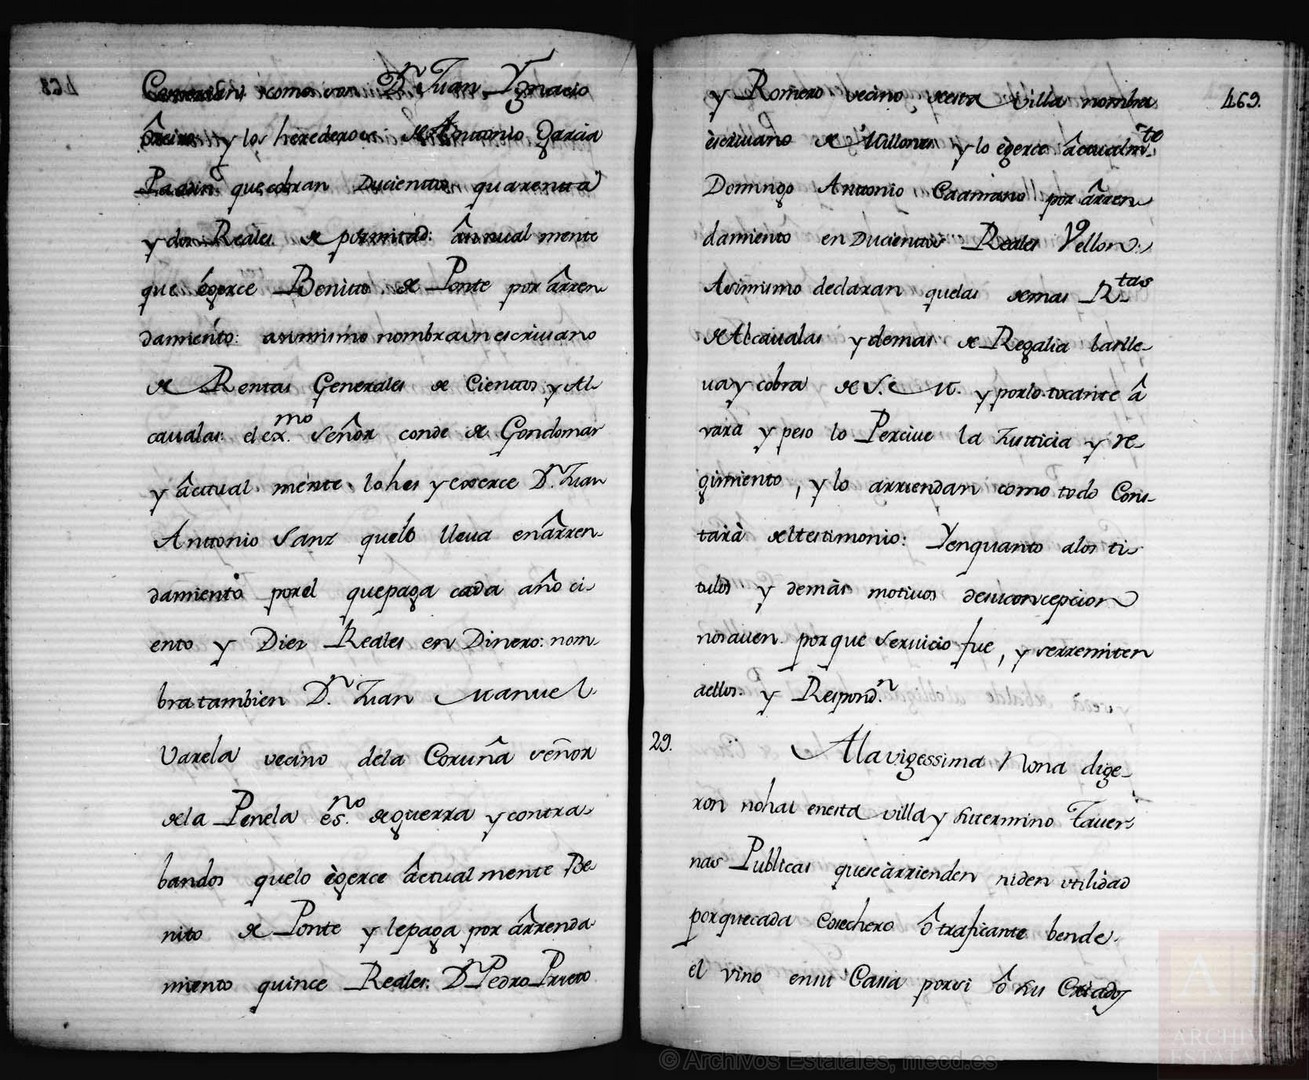 como son Dn. Juan Ygnacio
y los herederos de Antonio Garcia
Padin que cobran Ducientos quarenta
y dos Reales de por mitad: ânnual mente
que êgerce Benitto de Ponte por ârren
damiento: asimismo nombra un escrivano
de Rentas Generales de Cientos y Al
cavalas el exmo. Señor conde de Gondomar
y âctual mente lo hes y exerce Dn. Juan
Antonio Sanz quelo lleva en ârren
damiento por el que paga cada año ci
ento y Diez Reales en Dinero: nom
bra tambien Dn. Juan Manuel
Varela vecino dela Coruña señor
dela Penela esno. de guerra y contra
bandos quelo êgerce âctual mente Be
nito de Ponte y lepaga por ârrenda
miento quince Reales. Dn. Pedro Prieto
469.
y Romero vecino desta Villa nombra
êscrivano de Millones y lo êgerce âctualmte.
Domingo Antonio Caamaño por ârren
damiento en Ducientos Reales Vellon:
Asimismo declaran quelas demas Rtas
de Alcavalas y demas de Regalia las lle
va y cobra de S. M. y por lo tocante â
vara y peso lo Percive la Justicia y re
gimiento, y lo arriendan como todo Cons
tarà del testimonio: Yenquanto alos ti
tulos y demàs motivos desu concepcion
no saven porque servicio fue, y serremiten
aellos y Respondn.
29.
Ala vigessima Nona dige
ron nohai enesta villa y sutermino Taver
nas Publicas quese àrrienden niden utilidad
por quecada Cosechero ô traficante bende
el vino ensu Cassa porsi ô su Criado